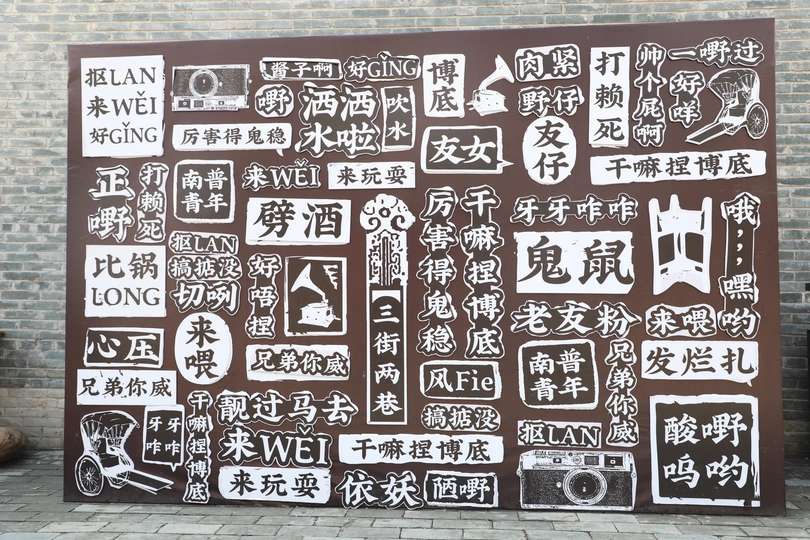 抠LAN
来WĚI
好GǏNG
酱子啊
好GǏNG
嘢
洒洒
水啦
吹水
厉害得鬼稳
博底
肉紧
野仔
打赖死
帅个屁啊
一嘢过
好咩
友女
友仔
干嘛捏博底
正嘢
打赖死
南普
青年
来WĚI
来玩耍
劈酒
抠LAN
搞掂没
切咧
好唔捏
比锅
LONG
三街两巷
厉害得鬼稳
干嘛捏博底
牙牙咋咋
鬼鼠
哦，，嘿哟
老友粉
来喂
心压
来喂
兄弟你威
兄弟你威
风Fie
南普
青年
兄弟你威
发烂扎
搞掂没
抠LAN
牙牙咋咋
干嘛捏博底
靓过马去
来WĚI
来玩耍
干嘛捏博底
依妖
陋嘢
酸嘢
呜哟